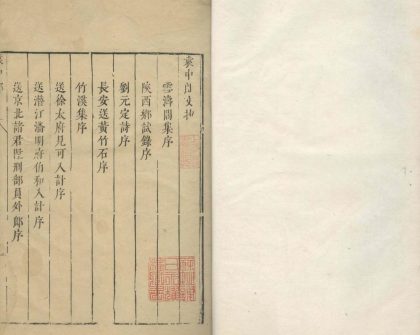 袁中郎文抄
雪濤閣集序
陝西鄉試錄序
劉元定詩序
長安送黃竹石序
竹溪集序
送徐太府見可入計序
送潛江潘明府伯和入計序
送京兆諸君陞刑部員外郎序